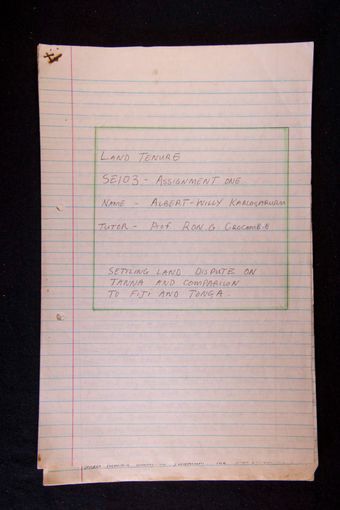 LAND TENURE
SE103 - ASSIGNMENT ONE
NAME - ALBERT-WILLY KARLOSARURM
TUTOR - Prof. RON.G CROCOMBE
SETTLING LAND DISPUTE ON
TANNA AND COMPARISON
TO FIJI AND TONGA